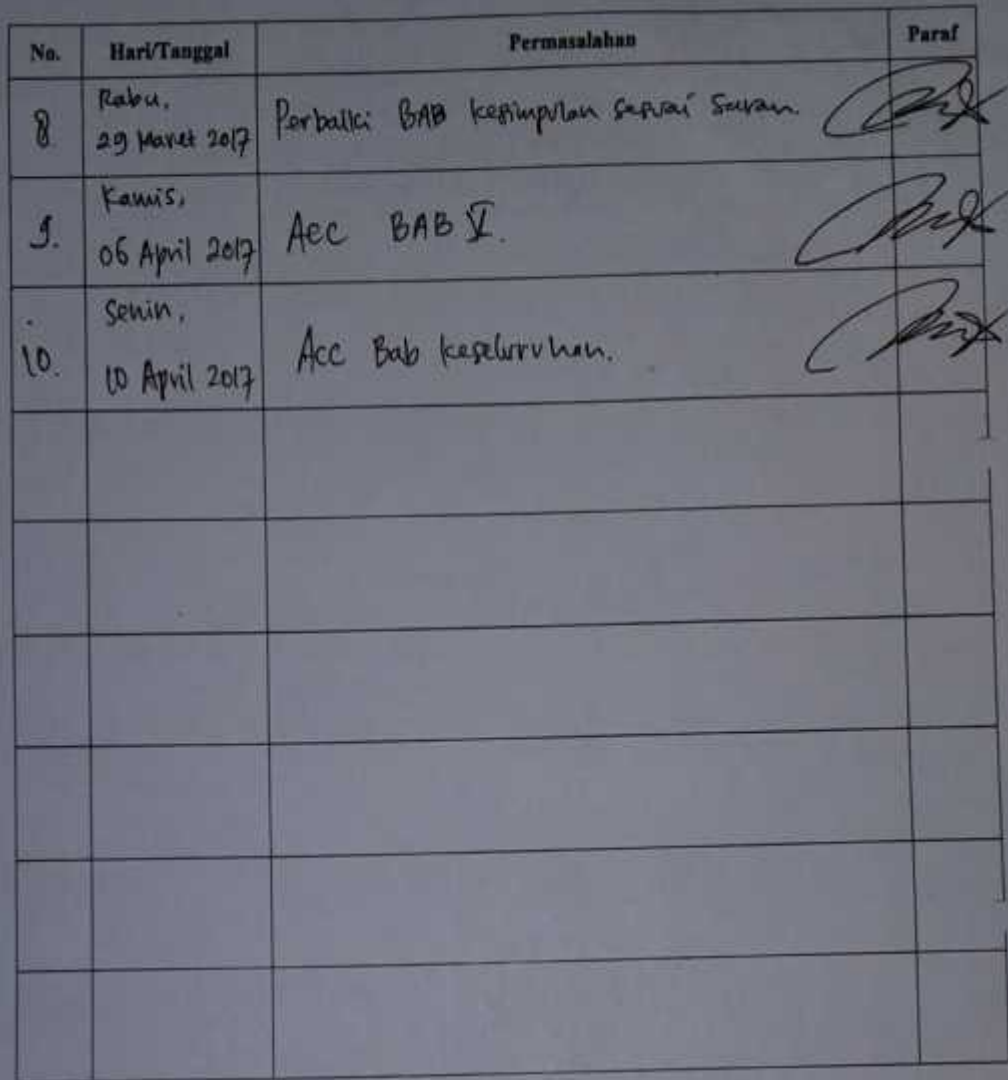 No. Hari/Tanggal Permasalahan Paraf
8 Rabu,
29 Maret 2017 Perbaiki BAB kesimpulan sesuai saran.
9. Kamis,
06 April 2017 Acc BAB V.
10. Senin,
10 April 2017 Acc Bab keseluruhan.